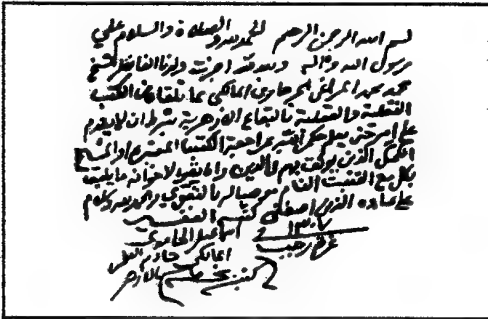 بسم الله الرحمن الرحيم الحمد لله والصلاة والسلام علي
رسول الله وآله وبعد فقد اجزت ولدنا الفاضل الشيخ
محمد محمد المراغي الجرجاوي المالكي بما تلقاه من الكتب
النقلية والعقلية بالبقاع الازهرية بشرط ان لا يقدم
علي امر حتي يعلم حكم الله فيه بمراجعة الكتب المعتبرة او المشايخ
الذين يوثق بهم في الدين وان يقرر لاخوانه ما يليق
بكل مع التثبت التام موصيا له بالتقوي والحمد لله وسلام
علي عباده الذين اصطفى كتبه الفقير
١٣٠٧ اسماعيل الحامدي
غرة رجب المالكي خادم العلم
بالازهر